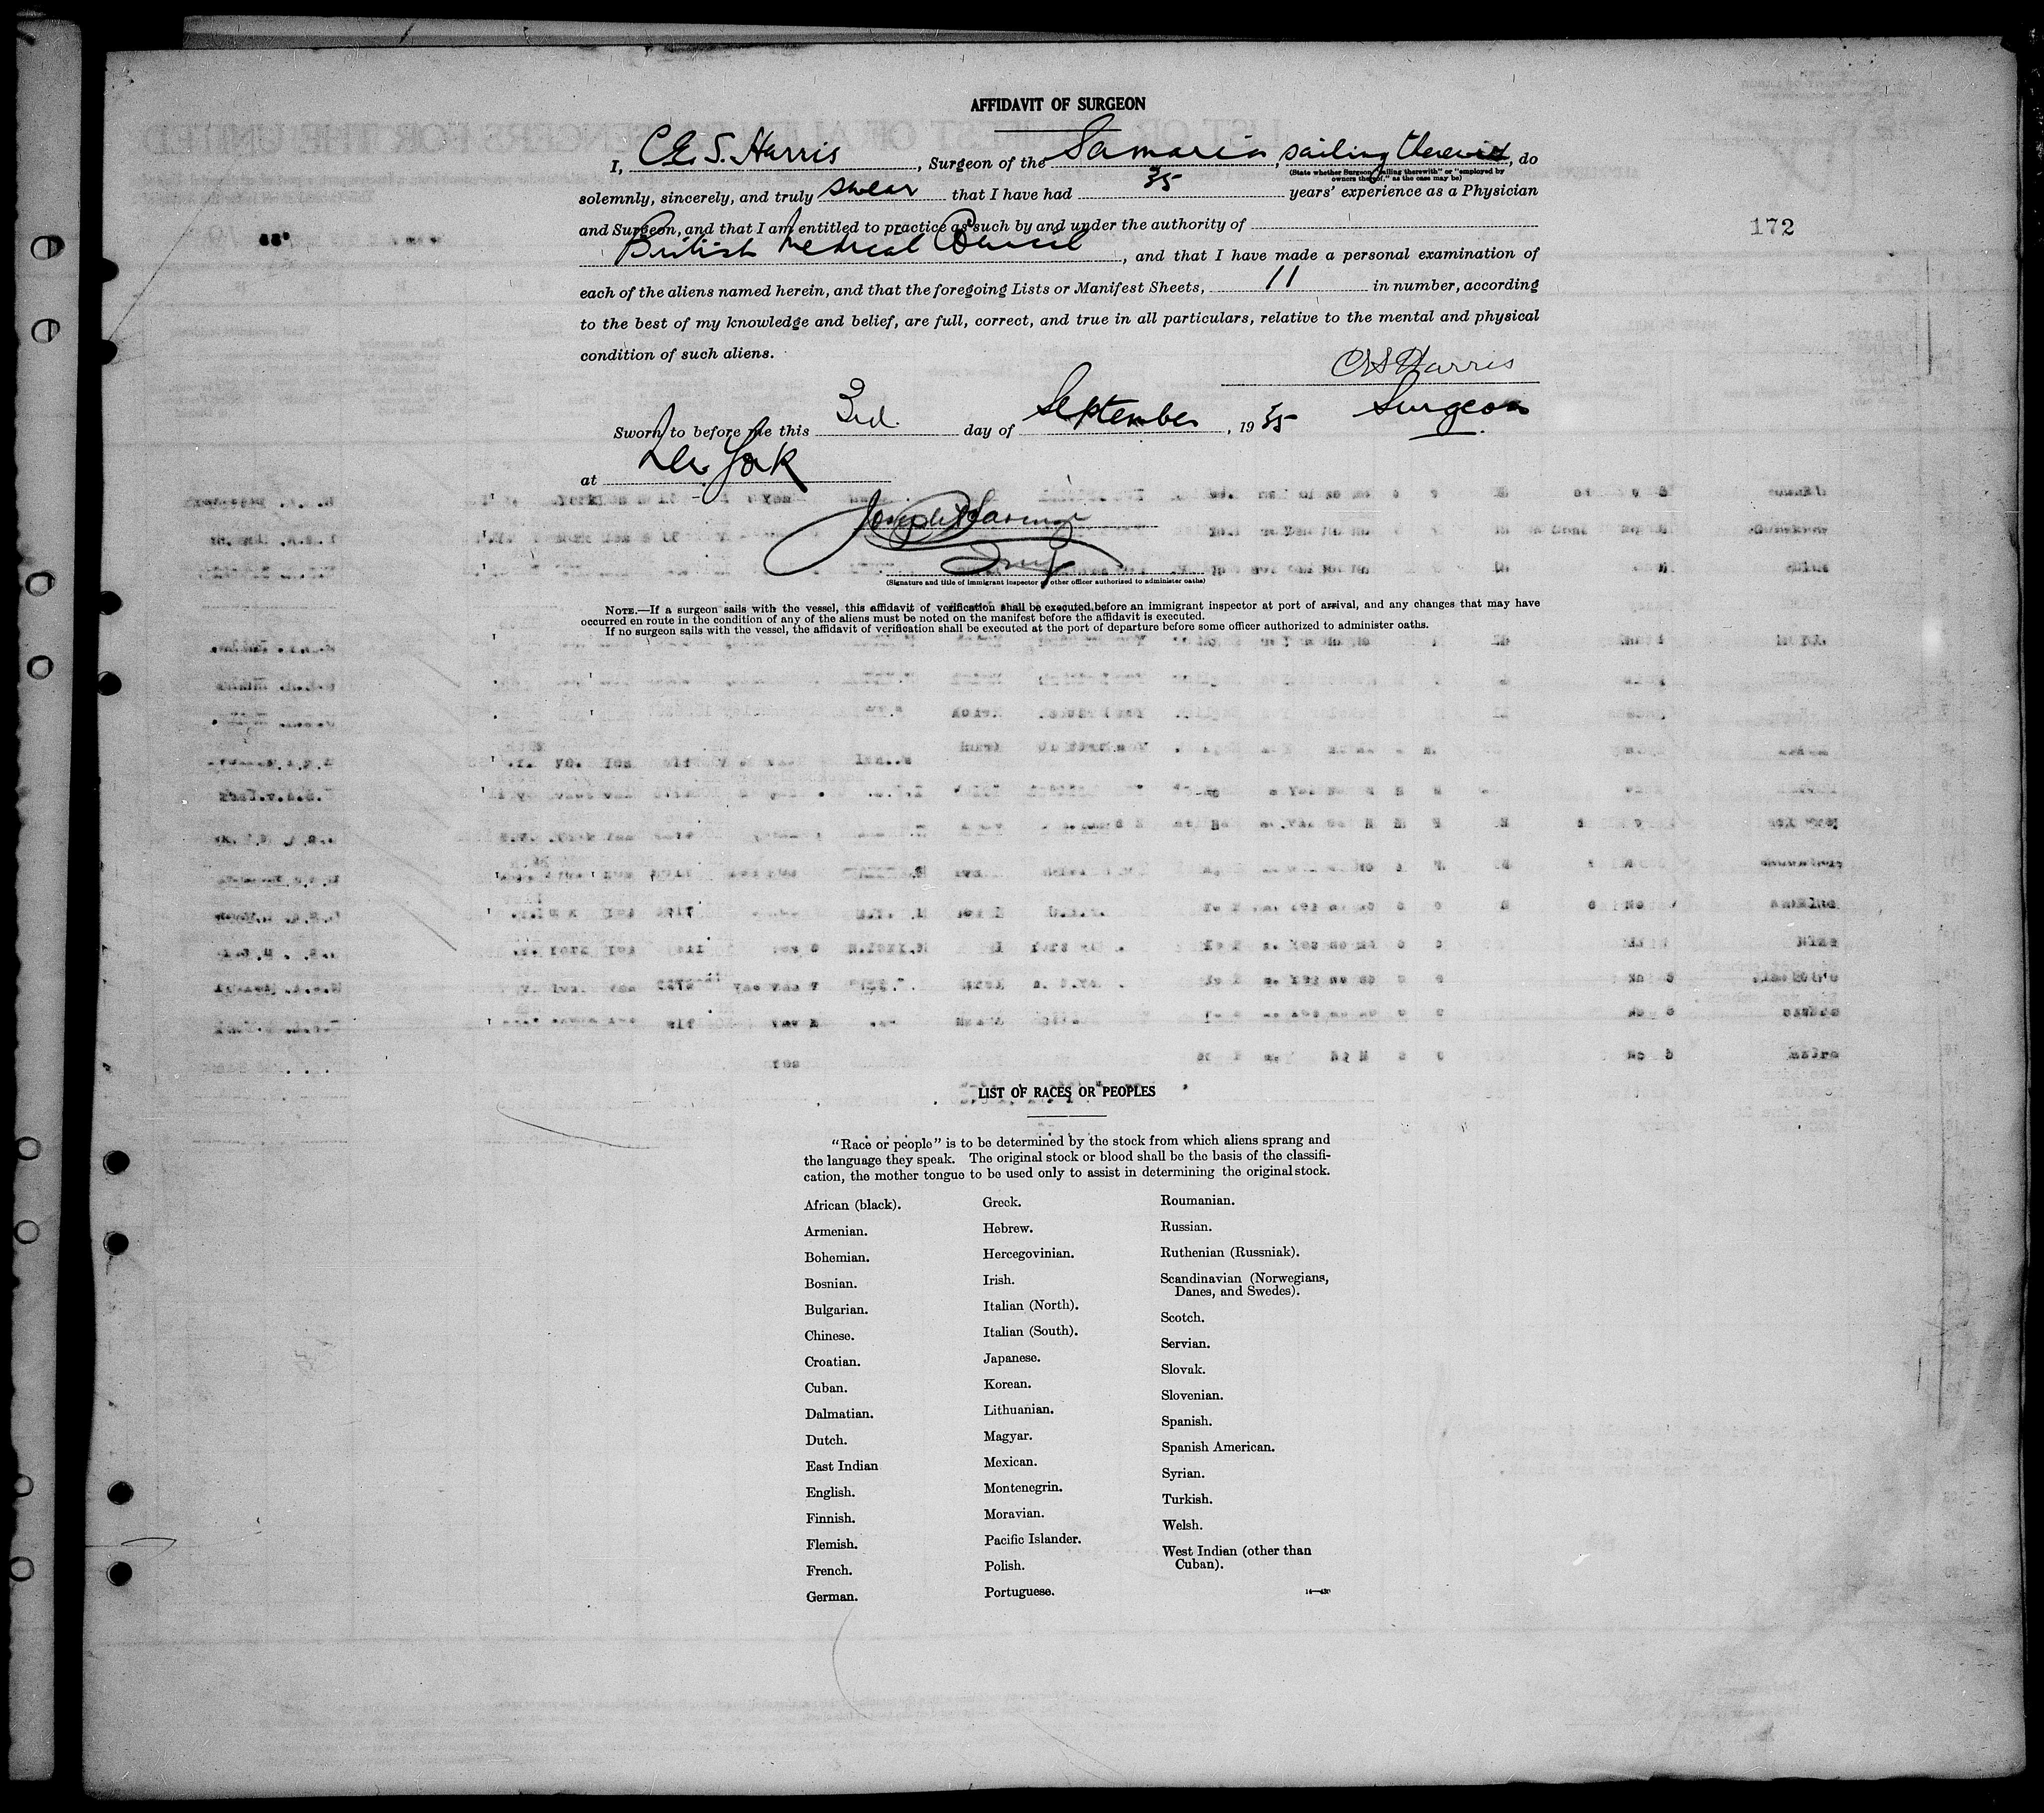 AFFIDAVIT OF SURGEON
I, C.E.S. Harris, Surgeon of the Samaria, sailing therewith, do
(State whether Surgeon "sailing therewith" or "employed by
owners thereof," as the case may be)
solemnly, sincerely, and truly swear that I have had 35 years' experience as a Physician
and Surgeon, and that I am entitled to practice as such by and under the authority of
172
British Medical Council, and that I have made a personal examination of
each of the aliens named herein, and that the foregoing Lists or Manifest Sheets, 11 in number, according
to the best of my knowledge and belief, are full, correct, and true in all particulars, relative to the mental and physical
condition of such aliens.
CES Harris
Surgeon
Sworn to before me this 3rd day of September, 1935
at New York
Joseph
(Signature and title of immigrant inspector or other officer authorized to administer oaths)
NOTE.—If a surgeon sails with the vessel, this affidavit of verification shall be executed before an immigrant inspector at port of arrival, and any changes that may have
occurred en route in the condition of any of the aliens must be noted on the manifest before the affidavit is executed.
If no surgeon sails with the vessel, the affidavit of verification shall be executed at the port of departure before some officer authorized to administer oaths.
LIST OF RACES OR PEOPLES
"Race or people" is to be determined by the stock from which aliens sprang and
the language they speak. The original stock or blood shall be the basis of the classifi-
cation, the mother tongue to be used only to assist in determining the original stock.
African (black).
Armenian.
Bohemian.
Bosnian.
Bulgarian.
Chinese.
Croatian.
Cuban.
Dalmatian.
Dutch.
East Indian
English.
Finnish.
Flemish.
French.
German.
Greek.
Hebrew.
Hercegovinian.
Irish.
Italian (North).
Italian (South).
Japanese.
Korean.
Lithuanian.
Magyar.
Mexican.
Montenegrin.
Moravian.
Pacific Islander.
Polish.
Portuguese.
Roumanian.
Russian.
Ruthenian (Russniak).
Scandinavian (Norwegians,
Danes, and Swedes).
Scotch.
Servian.
Slovak.
Slovenian.
Spanish.
Spanish American.
Syrian.
Turkish.
Welsh.
West Indian (other than
Cuban).